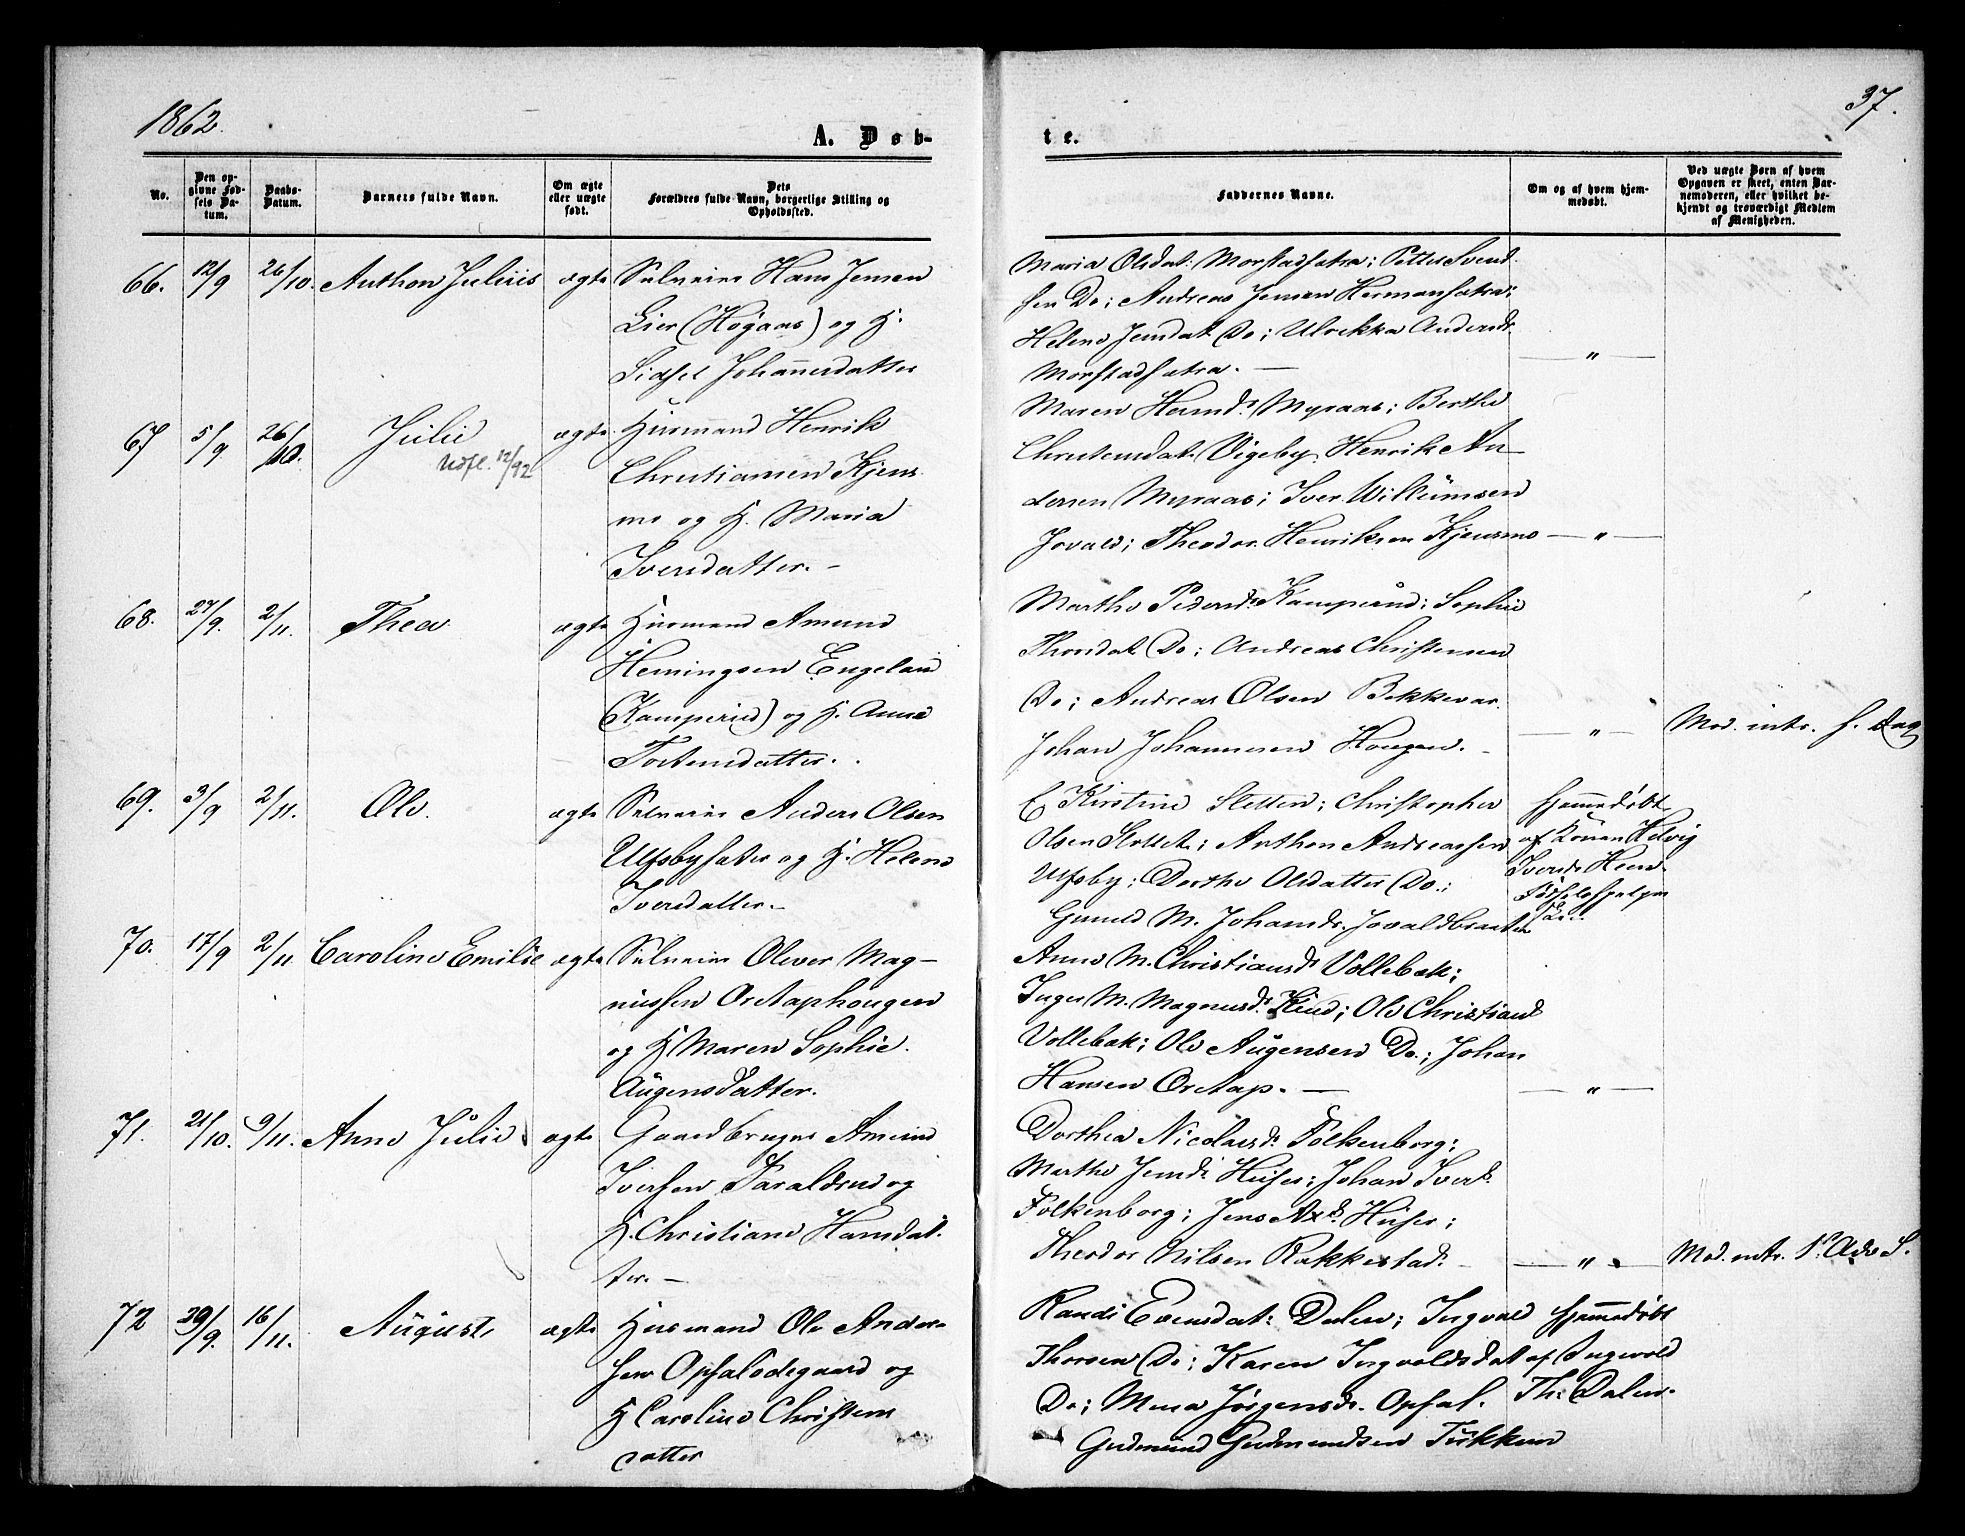 1862.
37.
A. Døb-
te.
No.
Den op-
givne Fød-
sels Da-
tum.
Daabs-
Datum.
Barnets fulde Navn.
Om ægte
eller uægte
født.
Dets
Forældres fulde Navn, borgerlige Stilling og
Opholdssted.
Faddernes Navne.
Om og af hvem hjem-
medøbt.
Ved uægte Børn af hvem
Opgaven er skeet, enten Bar-
nemoderen, eller hvilket be-
kjendt og troværdigt Medlem
af Menigheden.
66. 12/9 26/10. Anthon Julius ægte Selveier Hans Jensen
Lier (Høgaas) og H.
Sidsel Johannesdatter
Maria Olsdat. Morstadsætra; Petter Svend-
sen Do; Andreas Jensen Hermansætra;
Helene Jensdat. Do; Ulrikka Andersdr.
Morstadsætra. —
— " —
67 5/9 26/10. Julie ægte. Husmand Henrik
Udfl. 12/92
Christiansen Kjens-
mo og H. Maria
Iversdatter. —
Maren Hermds. Myraas; Berthe
Christensdat. Vigeby, Henrik An-
dersen Myraas; Iver Willumsen
Jovald; Theodor Henriksen Kjensmo — " —
68. 27/9. 2/11. Thea ægte Husmand Amund
Hemingsen Engelau
(Kamperud) og H. Anne
Torstensdatter.
Marthe Pedersdr. Kamperud; Sophie
Thorsdat. Do; Andreas Christensen
Do; Andreas Olsen Bekkevar.
Johan Johannesen Hougen. —
— " — Mod. intr. s. Dag
69. 3/9 2/11. Ole. ægte Selveier Anders Olsen
Ulfsbysæter og H. Helene
Iversdatter. —
E Kirstine Sletten; Christopher
Olsen Slottet; Anthon Andreassen
Ulfsby; Dorthe Olsdatter Do;
Gunild M. Johansdr. Jovaldbraaten
Hjemmedøbt
af Konen Helvig
Iversdr.
Fødselshjelper
70. 17/9 2/11 Caroline Emilie ægte Selveier Olever Mag-
nussen Ørstaphougen
og H Maren Sophie
Augensdatter.
Anne M. Christiansdr Vollebæk;
Inger M. Magnusdr. Lund; Ole Christians.
Vollebæk; Ole Augensen Do.; Johan
Hansen Ørstap. —
— " —
71. 21/10. 9/11. Anne Julie ægte Gaardbruger Amund
Iversen Haraldsrud og
H. Christiane Hansdat-
ter. —
Dorthea Nicolaisdr. Folkenborg;
Marthe Jensdr. Huser; Johan Ivers.
Folkenborg; Jens Ax. Huser;
Theodor Nilsen Rakkestad. —
— " — Mod. intr. 1ste Adv. S.
72 29/9. 16/11. Auguste ægte Husmand Ole Ander-
sen Opsalødegaard og
H Caroline Christens
datter
Randi Evensdat. Dalen; Ingvald
Thorsen Do; Karen Ingvoldsdat
Do; Mina Jørgensdr. Opsal.
Gudmund Gudmundsen Tukkun
Hjemmedøbt
af Ingvold
Th: Dalen.